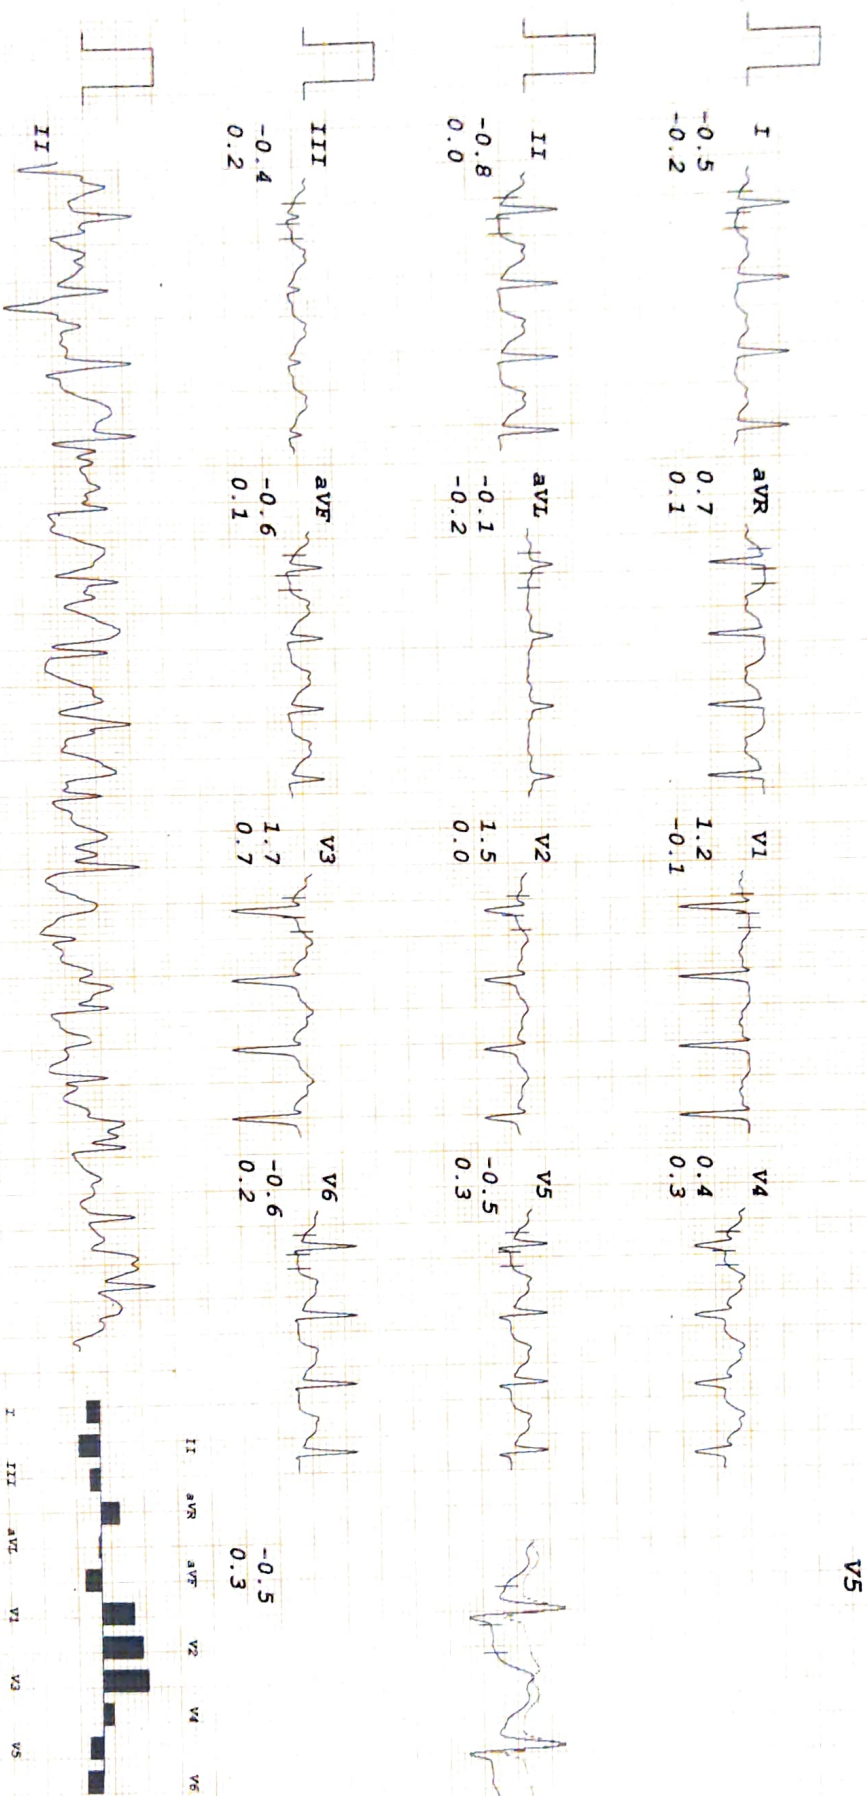 V5
I
-0.5
-0.2
aVR
0.7
0.1
V1
1.2
-0.1
V4
0.4
0.3
II
-0.8
0.0
aVL
-0.1
-0.2
V2
1.5
0.0
V5
-0.5
0.3
III
-0.4
0.2
aVF
-0.6
0.1
V3
1.7
0.7
V6
-0.6
0.2
-0.5
0.3
II
II aVR aVF V2 V4 V6
I III aVL V1 V3 V5